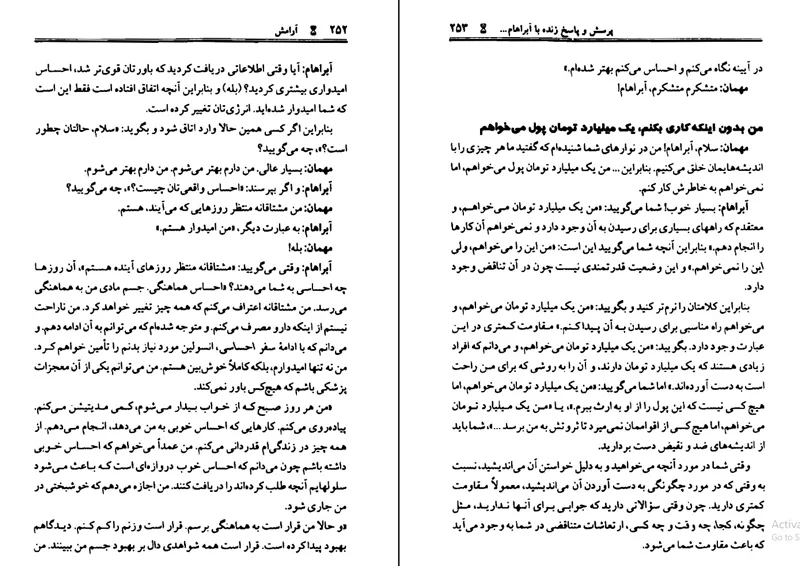 ۲۵۲ آرامش
آبراهام: آیا وقتی اطلاعاتی دریافت کردید که باورتان قوی‌تر شد، احساس
امیدواری بیشتری کردید؟ (بله) و بنابراین آنچه اتفاق افتاده است فقط این است
که شما امیدوار شده‌اید. انرژی‌تان تغییر کرده است.
بنابراین اگر کسی همین حالا وارد اتاق شود و بگوید: «سلام، حالتان چطور
است؟»، چه می‌گویید؟
مهمان: بسیار عالی. من دارم بهتر می‌شوم. من دارم بهتر می‌شوم.
آبراهام: و اگر بپرسند: «احساس واقعی‌تان چیست؟»، چه می‌گویید؟
مهمان: من مشتاقانه منتظر روزهایی که می‌آیند، هستم.
آبراهام: به عبارت دیگر، «من امیدوار هستم.»
مهمان: بله!
آبراهام: وقتی می‌گویید: «مشتاقانه منتظر روزهای آینده هستم»، آن روزها
چه احساسی به شما می‌دهند؟ «احساس هماهنگی. جسم مادی من به هماهنگی
می‌رسد. من مشتاقانه اعتراف می‌کنم که همه چیز تغییر خواهد کرد. من ناراحت
نیستم از اینکه دارو مصرف می‌کنم. و متوجه شده‌ام که می‌توانم به آن ادامه دهم. و
می‌دانم که با ادامهٔ سفر احساسی، انسولین مورد نیاز بدنم را تأمین خواهم کرد.
من نه تنها امیدوارم، بلکه کاملاً خوش‌بین هستم. من می‌توانم یکی از آن معجزات
پزشکی باشم که هیچ‌کس باور نمی‌کند.
«من هر روز صبح که از خواب بیدار می‌شوم، کمی مدیتیشن می‌کنم.
پیاده‌روی می‌کنم. کارهایی که احساس خوبی به من می‌دهد، انجام می‌دهم. از
همه چیز در زندگی‌ام قدردانی می‌کنم. من عمداً می‌خواهم که احساس خوبی
داشته باشم چون می‌دانم که احساس خوب دروازه‌ای است که باعث می‌شود
سلولهایم آنچه طلب کرده‌اند را دریافت کنند. من اجازه می‌دهم که خوشبختی در
من جاری شود.
«و حالا من قرار است به هماهنگی برسم. قرار است وزنم را کم کنم. دیدگاهم
بهبود پیدا کرده است. قرار است همه شواهدی دال بر بهبود جسم من ببینند. من
پرسش و پاسخ زنده با آبراهام... ۲۵۳
در آیینه نگاه می‌کنم و احساس می‌کنم بهتر شده‌ام.»
مهمان: متشکرم متشکرم، آبراهام!
من بدون اینکه کاری بکنم، یک میلیارد تومان پول می‌خواهم
مهمان: سلام، آبراهام! من در نوارهای شما شنیده‌ام که گفتید ما هر چیزی را با
اندیشه‌هایمان خلق می‌کنیم. بنابراین... من یک میلیارد تومان پول می‌خواهم، اما
نمی‌خواهم به خاطرش کار کنم.
آبراهام: بسیار خوب! شما می‌گویید: «من یک میلیارد تومان می‌خواهم، و
معتقدم که راههای بسیاری برای رسیدن به آن وجود دارد و نمی‌خواهم آن کارها
را انجام دهم.» بنابراین آنچه شما می‌گویید این است: «من این را می‌خواهم، ولی
این را نمی‌خواهم.» و این وضعیت قدرتمندی نیست چون در آن تناقض وجود
دارد.
بنابراین کلامتان را نرم‌تر کنید و بگویید: «من یک میلیارد تومان می‌خواهم، و
می‌خواهم راه مناسبی برای رسیدن به آن پیدا کنم.» مقاومت کمتری در این
عبارت وجود دارد. بگویید: «من یک میلیارد تومان می‌خواهم، و می‌دانم که افراد
زیادی هستند که یک میلیارد تومان دارند، و آن را به روشی که برای من راحت
است به دست آورده‌اند.» اما شما می‌گویید: «من یک میلیارد تومان می‌خواهم، اما
هیچ کسی نیست که این پول را از او به ارث ببرم.»، یا «من یک میلیارد تومان
می‌خواهم، اما هیچ کسی از اقوامم‌ان نمی‌میرد تا ثروتش به من برسد ...»، شما باید
از اندیشه‌های ضد و نقیض دست بردارید.
وقتی شما در مورد آنچه می‌خواهید و به دلیل خواستن آن می‌اندیشید، نسبت
به وقتی که در مورد چگونگی به دست آوردن آن می‌اندیشید، معمولاً مقاومت
کمتری دارید. چون وقتی سؤالاتی دارید که جوابی برای آنها ندارید، مثل
چگونه، کجا، چه وقت و چه کسی، ارتعاشات متناقضی در شما به وجود می‌آید
که باعث مقاومت شما می‌شود.
Activa
Go to S